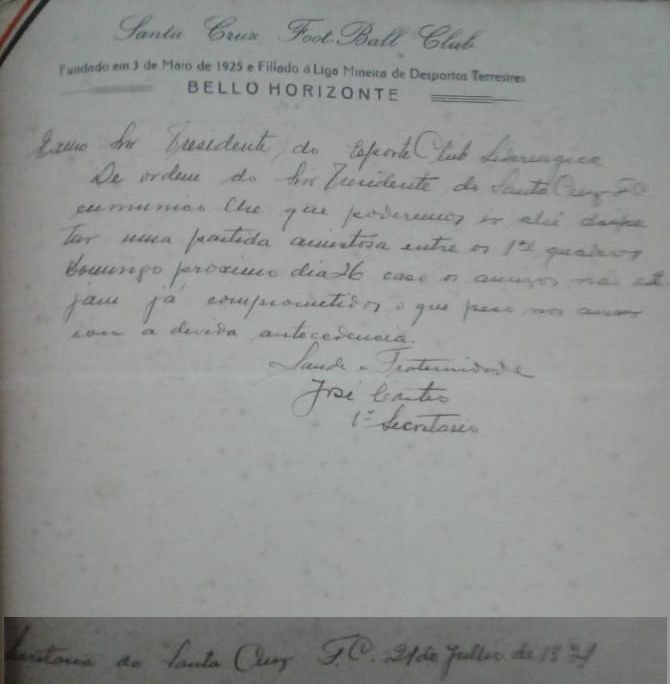 Santa Cruz Foot-Ball Club
Fundado em 3 de Maio de 1925 e Filiado á Liga Mineira de Desportos Terrestres
BELLO HORIZONTE
Exmo Snr Presidente, do Esporte Club Siderurgica
De ordem do Snr Prezidente do Santa Cruz F.C.
cumunico lhe que poderemos ir ahi dispu
tar uma partida amistosa entre os 1os quadros
domingo proximo dia 26 caso os amigos não este
jam já compromettidos o que peço nos avisar
com a devida antecedencia.
Saude e Fraternidade
José Castro
1º Secretario
Secretaria do Santa Cruz F.C. 21 de Julho de